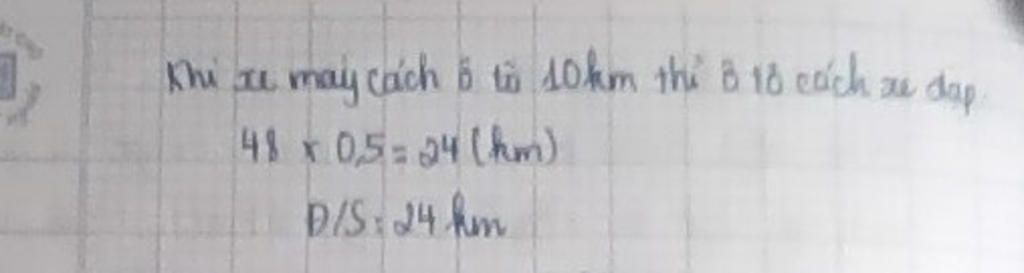 Khi xe máy cách ô tô 10km thì ô tô cách xe đạp.
48 x 0,5 = 24 (km)
Đ/S: 24 km